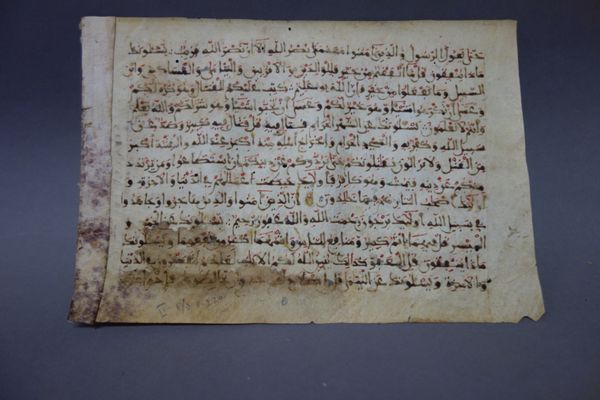 حتى يقول الرسول والذين امنوا معه متى نصر الله الا ان نصر الله قريب يسئلونك
ماذا ينفقون قل ما انفقتم من خير فللولدين والاقربين واليتمى والمسكين وابن
السبيل وما تفعلوا من خير فان الله به عليم كتب عليكم القتال وهو كره لكم
وعسى ان تكرهوا شيئا وهو خير لكم وعسى ان تحبوا شيئا وهو شر لكم والله يعلم
وانتم لا تعلمون يسئلونك عن الشهر الحرام قتال فيه قل قتال فيه كبير وصد عن
سبيل الله وكفر به والمسجد الحرام واخراج اهله منه اكبر عند الله والفتنة اكبر
من القتل ولا يزالون يقتلونكم حتى يردوكم عن دينكم ان استطعوا ومن يرتدد
منكم عن دينه فيمت وهو كافر فاولئك حبطت اعملهم في الدنيا والاخرة و
اولئك اصحب النار هم فيها خلدون ان الذين امنوا والذين هاجروا وجهدوا
في سبيل الله اولئك يرجون رحمت الله والله غفور رحيم يسئلونك عن الخمر و
الميسر قل فيهما اثم كبير ومنفع للناس واثمهما اكبر من نفعهما ويسئلونك
ماذا ينفقون قل العفو كذلك يبين الله لكم الايت لعلكم تتفكرون في الدنيا
والاخرة ويسئلونك عن اليتمى قل اصلاح لهم خير وان تخالطوهم فاخوانكم